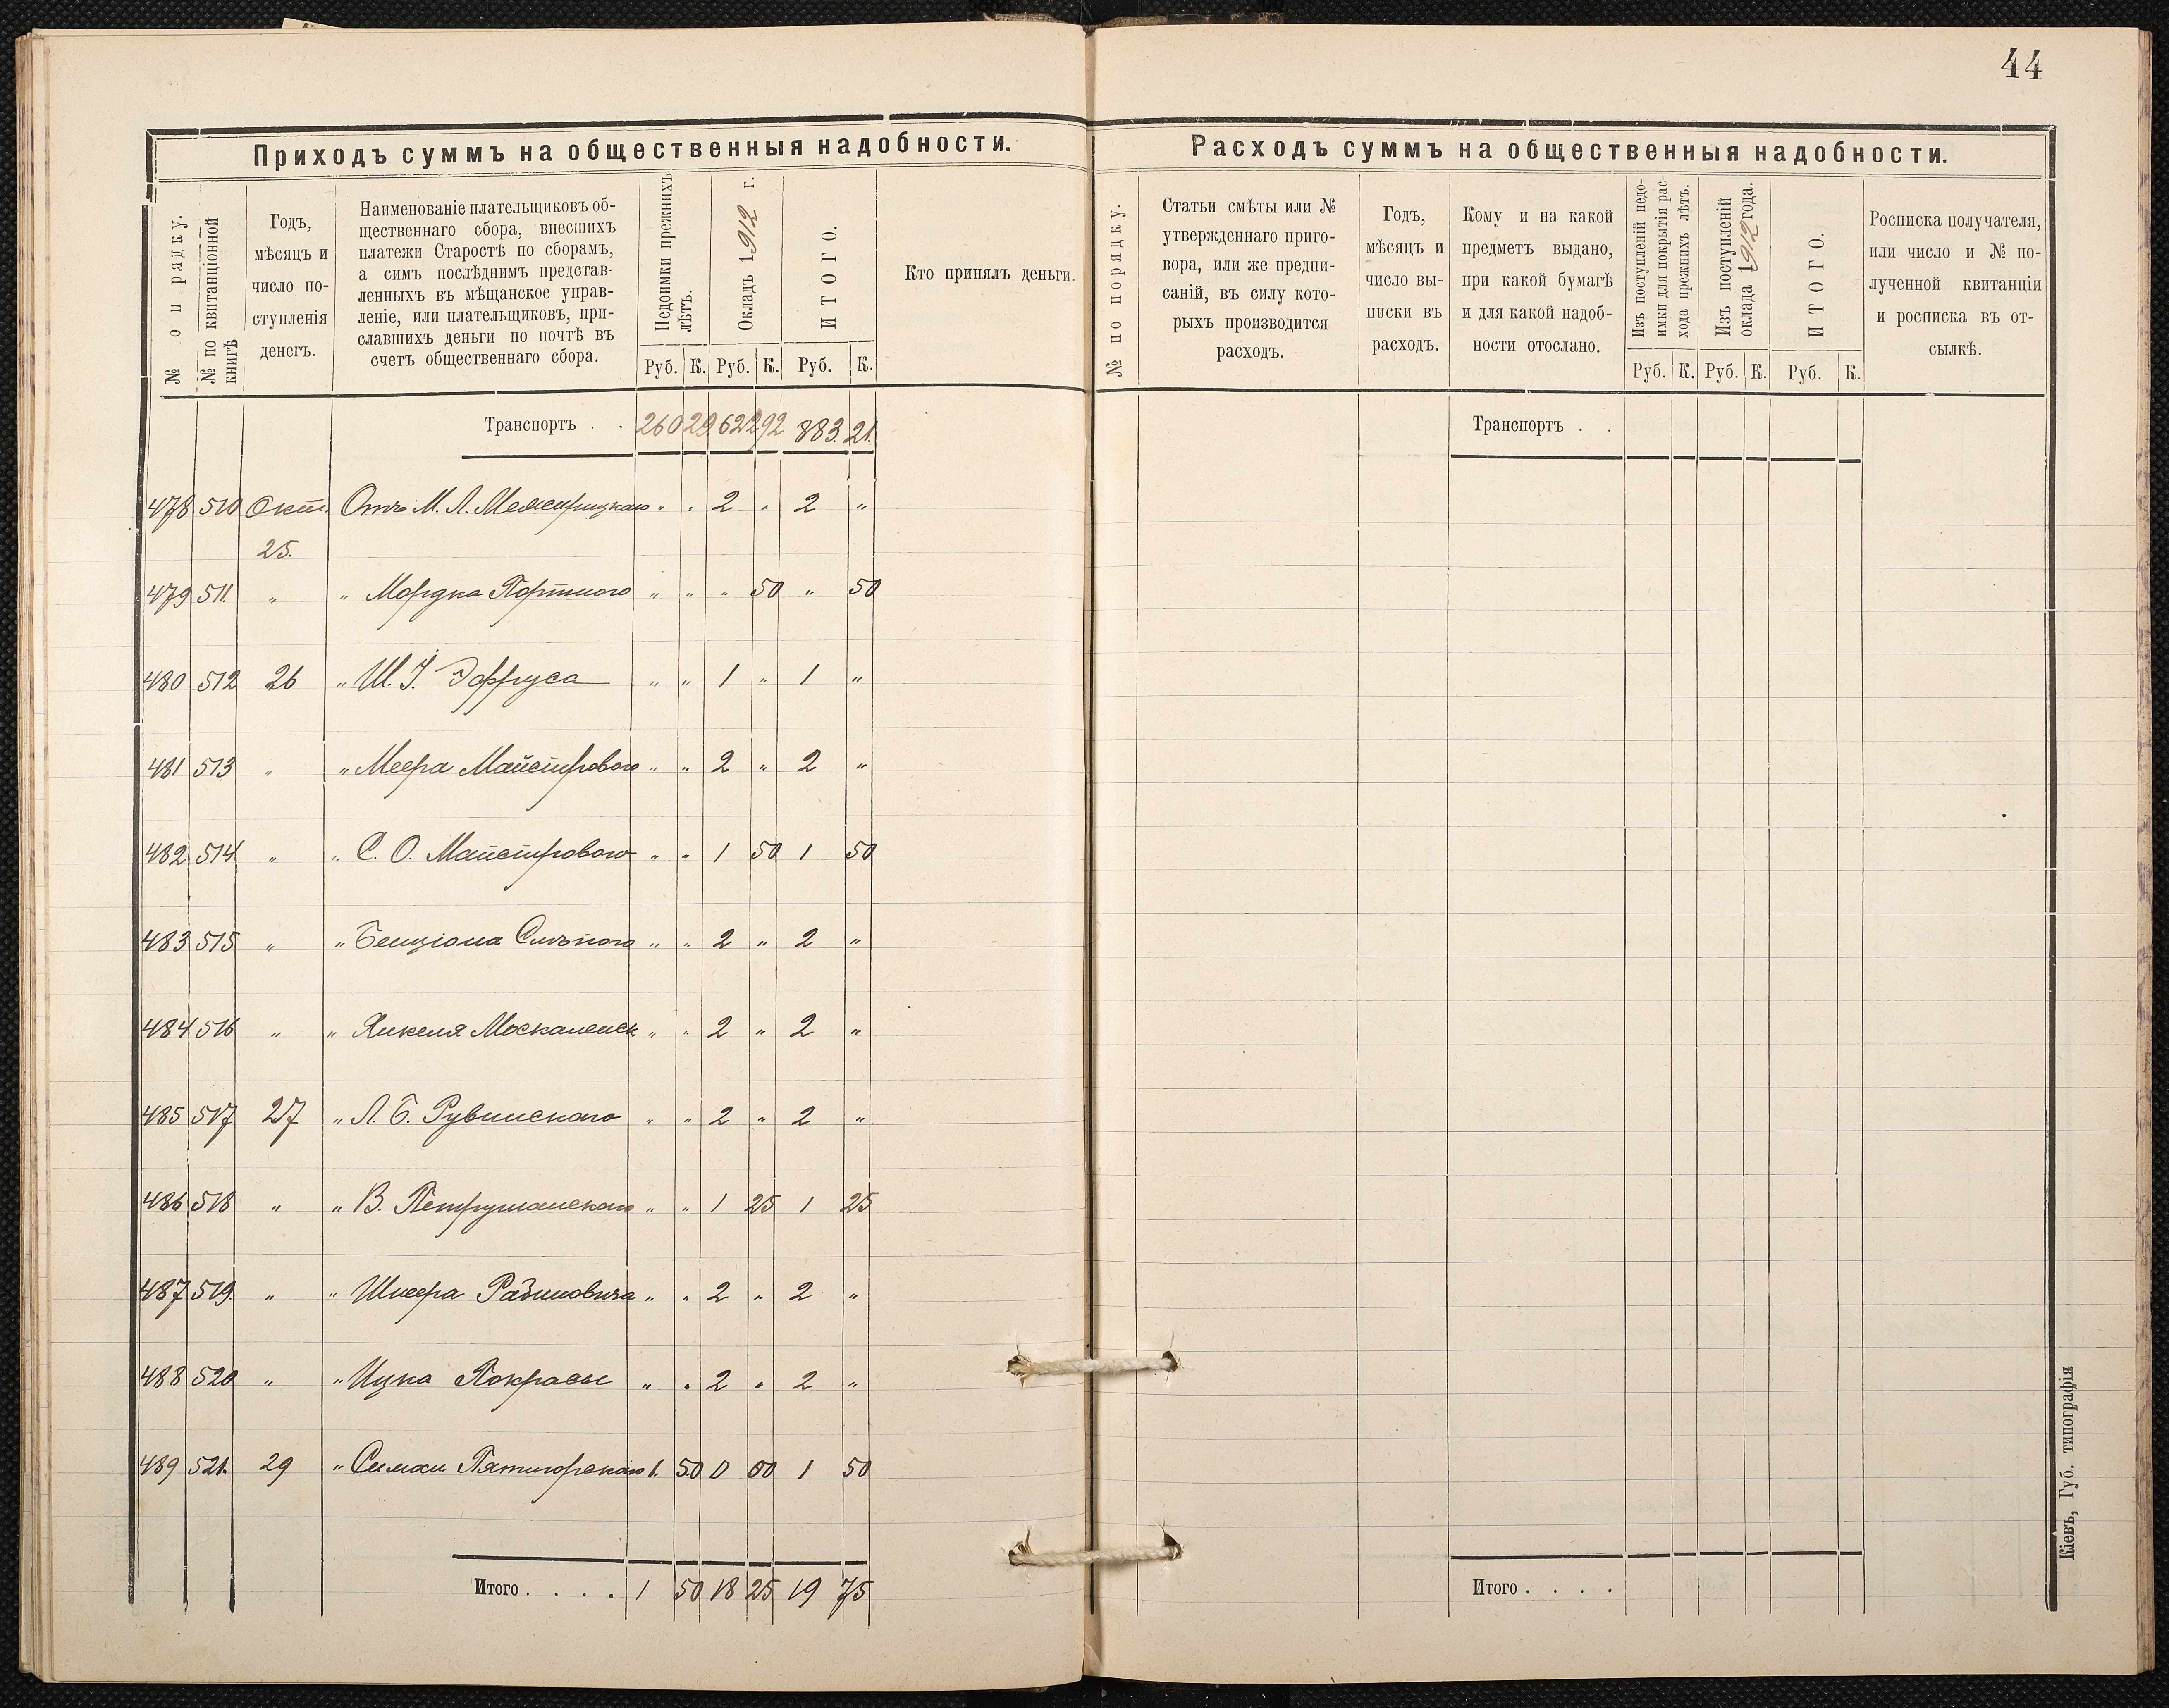 44
Приходъ суммъ на общественныя надобности.
№ по рядку.
№ по квитанціонной книгѣ
Годъ,
мѣсяцъ и
число по-
ступленія
денегъ.
Наименованіе плательщиковъ об-
щественнаго сбора, внесшихъ
платежи Старостѣ по сборамъ,
а симъ послѣднимъ представ-
ленныхъ въ мѣщанское управ-
леніе, или плательщиковъ, при-
славшихъ деньги по почтѣ въ
счетъ общественнаго сбора.
Недоимки прежнихъ
лѣтъ.
Окладъ 1912 г.
ИТОГО.
Руб. К. Руб. К. Руб. К.
Кто принялъ деньги.
Транспортъ . . 260 29 622 92 883. 21.
478 510 Окт. Отъ М. Л. Межирицкаго „ „ 2 „ 2 „
25.
479 511. „ „ Мордка Портного „ „ „ 50 „ 50
480 512 26 „ Ш. І. Эфруса „ „ 1 „ 1 „
481 513 „ „ Меера Майстрового „ „ 2 „ 2 „
482 514 „ „ С. О. Майстрового „ „ 1 50 1 50
483 515 „ „ Бенціона Слѣпого „ „ 2 „ 2 „
484 516 „ „ Янкеля Москаленск „ „ 2 „ 2 „
485 517 27 „ Л. Б. Рувинскаго „ „ 2 „ 2 „
486 518 „ „ В. Петрушанскаго „ „ 1 25 1 25
487 519. „ „ Шнеера Рабиновича „ „ 2 „ 2 „
488 520 „ „ Ицка Покрасы „ „ 2 „ 2 „
489 521. 29 „ Симхи Пятигорскаго 1. 50 0 00 1 50
Итого . . . . 1 50 18 25 19 75
Расходъ суммъ на общественныя надобности.
№ по порядку.
Статьи смѣты или №
утвержденнаго приго-
вора, или же предпи-
саній, въ силу кото-
рыхъ производится
расходъ.
Годъ,
мѣсяцъ и
число вы-
писки въ
расходъ.
Кому и на какой
предметъ выдано,
при какой бумагѣ
и для какой надоб-
ности отослано.
Изъ поступленій недо-
имки для покрытія рас-
хода прежнихъ лѣтъ.
Изъ поступленій
оклада 1912 года.
ИТОГО.
Руб. К. Руб. К. Руб. К.
Росписка получателя,
или число и № по-
лученной квитанціи
и росписка въ от-
сылкѣ.
Транспортъ . .
Итого . . . .
Кіевъ, Губ. типографія